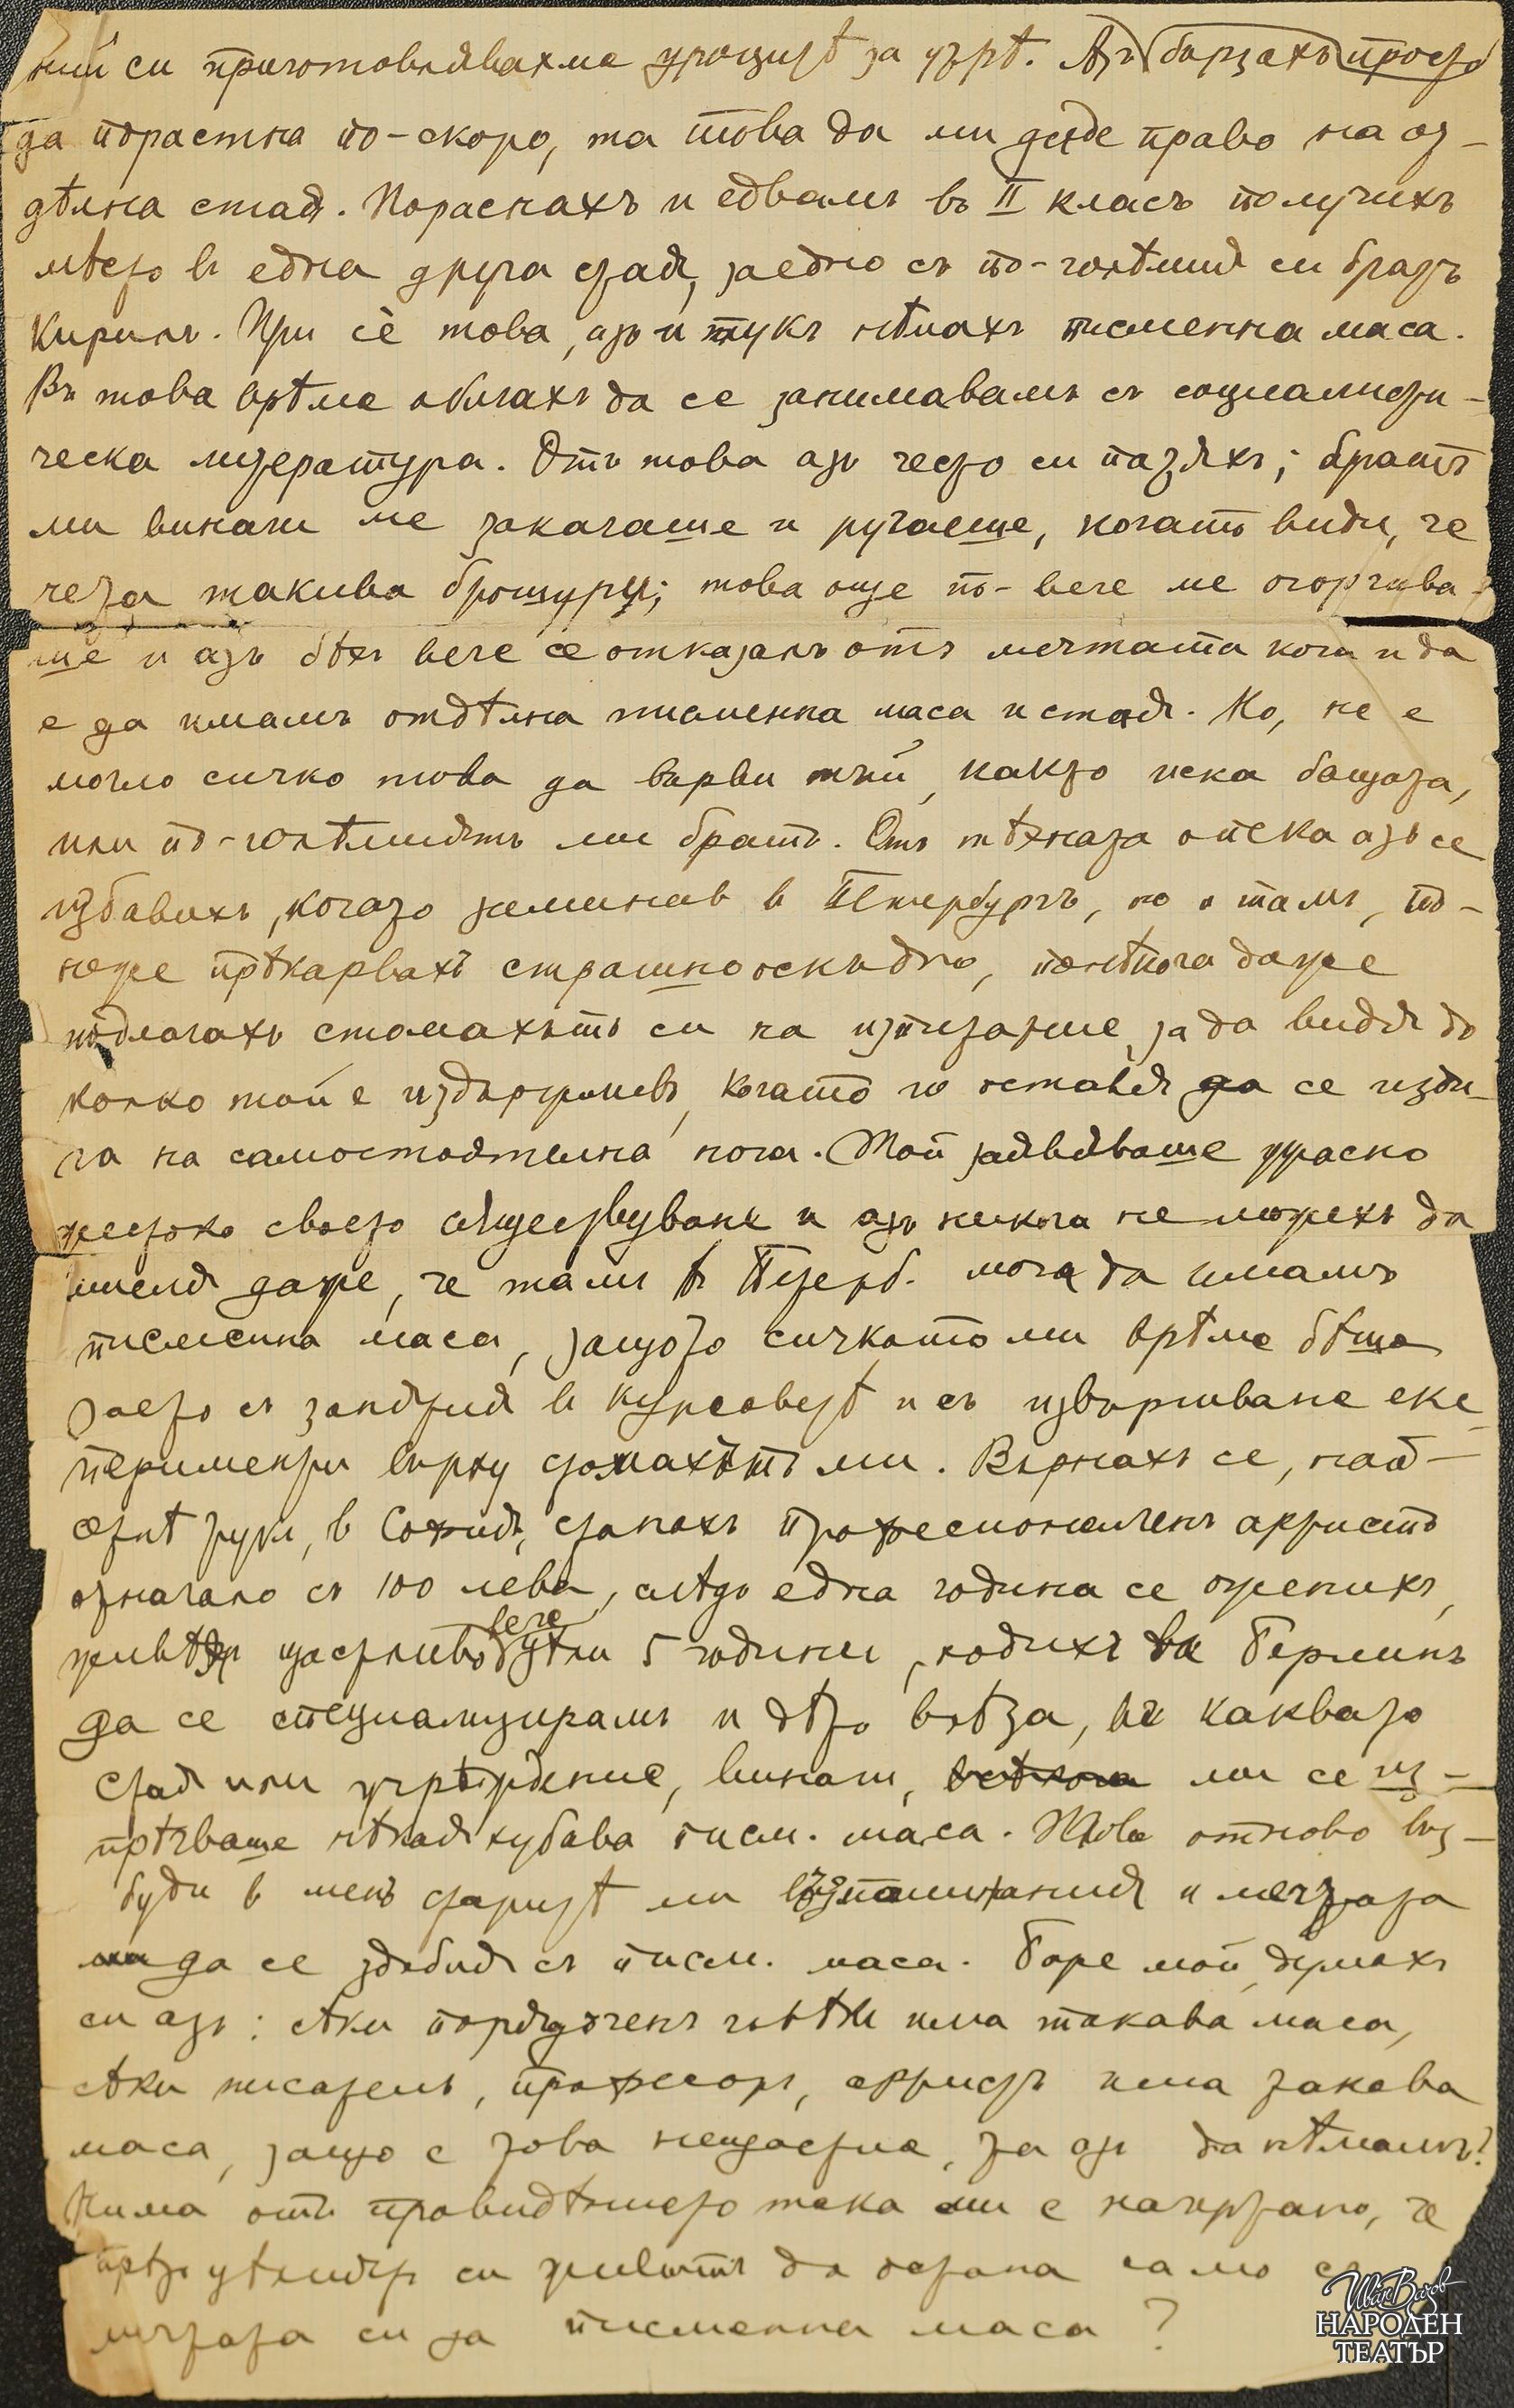 ний си приготовлявахме уроцитѣ за утрѣ. Азъ бързахъ просто
да порастна по-скоро, та това да ми даде право на от-
дѣлна стая. Пораснахъ и едвамъ въ II класъ получихъ
мѣсто въ една друга стая, заедно съ по-голѣмия си братъ
Кирилъ. При сѐ това, азъ и тукъ нѣмахъ писменна маса.
Въ това врѣме обичахъ да се занимавамъ съ социалисти-
ческа литература. Отъ това азъ често си патяхъ; братъ
ми винаги ме закачаше и ругаеше, когато види, че
чета такива брошури; това още по-вече ме огорчава-
ше и азъ бѣхъ вече се отказалъ отъ мечтата кога и да
е да имамъ отдѣлна писменна маса и стая. Но, не е
могло сичко това да върви тъй, както иска бащата,
или по-голѣмиятъ ми братъ. Отъ тѣхната опека азъ се
избавихъ, когато заминав в Петербургъ, но и тамъ, по-
неже прѣкарвахъ страшно оскъдно, понѣкога даже
подлагахъ стомахътъ си на изпитание, за да видя до
колко той е издържливъ, когато го оставя да се изди-
га на самостоятелна нога. Той заявяваше ужасно
жестоко своето сѫществуване и азъ никога не можехъ да
мисля даже, че тамъ въ Петерб. мога да имамъ
писменна маса, защото сичкото ми врѣме бѣше
заето съ занятия въ курсоветѣ и съ извършване екс-
перименти върху стомахътъ ми. Върнахъ се, най-
сетнѣ тука, в София, станахъ професионаленъ артистъ
отначало съ 100 лева, слѣдъ една година се оженихъ,
живѣя щастливо вече цѣли 5 години, ходихъ въ Берлинъ
да се специализирамъ и дѣто влѣза, въ каквато
стая или учрѣждение, винаги, ми се из-
прѣчваше нѣкая хубава писм. маса. Това отново въз-
буди в менъ старитѣ ми възпоминания и мечтата
да се здобия съ писм. маса. Боже мой, думахъ
си азъ: сѣки порядъченъ човѣкъ има такава маса,
сѣки писатель, професоръ, артистъ има такава
маса, защо е това нещастие, та азъ да нѣмамъ?
Нима отъ провидѣнието така ми е начертано, че
прѣзъ цѣлиятъ си животъ да остана само съ
мечтата си за писменна маса?
Иван Вазов
НАРОДЕН
ТЕАТЪР